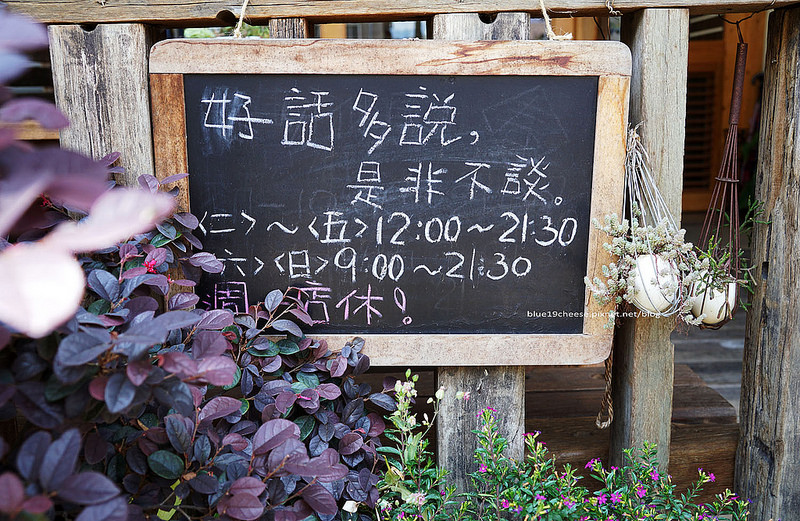 好話多說,
是非不談。
<二>~<五>12:00~21:30
六><日>9:00~21:30
週 店休!
blue19check.pixnet.net/blog